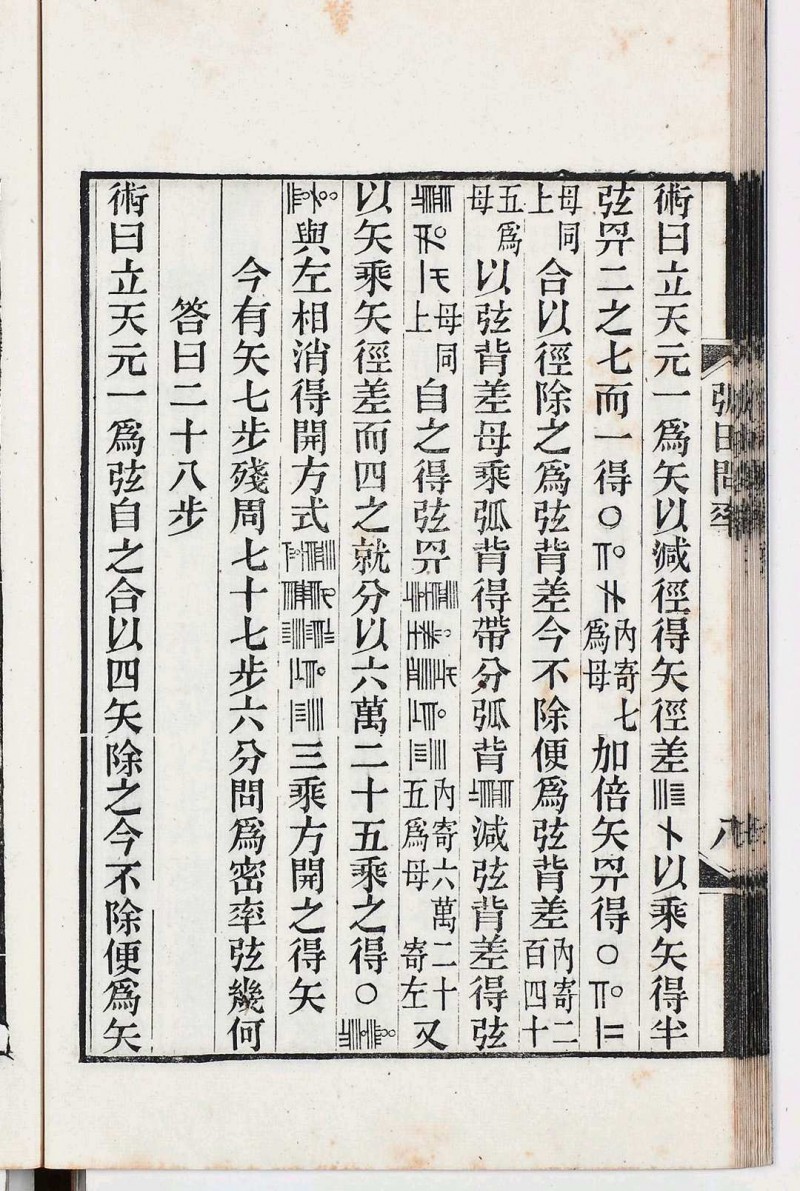 弧田問率
八
術曰立天元一爲矢以減徑得矢徑差以乘矢得半
弦冪二之七而一得〇內寄七爲母加倍矢冪得〇
母同上合以徑除之爲弦背差今不除便爲弦背差內寄二百四十
五爲母以弦背差母乘弧背得帶分弧背減弦背差得弦
母同上自之得弦冪內寄六萬二十五爲母寄左又
以矢乘矢徑差而四之就分以六萬二十五乘之得〇
與左相消得開方式三乘方開之得矢
今有矢七步殘周七十七步六分問爲密率弦幾何
答曰二十八步
術曰立天元一爲弦自之合以四矢除之今不除便爲矢